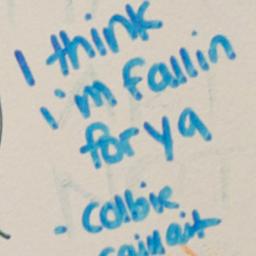 I think
i'm fallin
for ya
- colbie
caillait